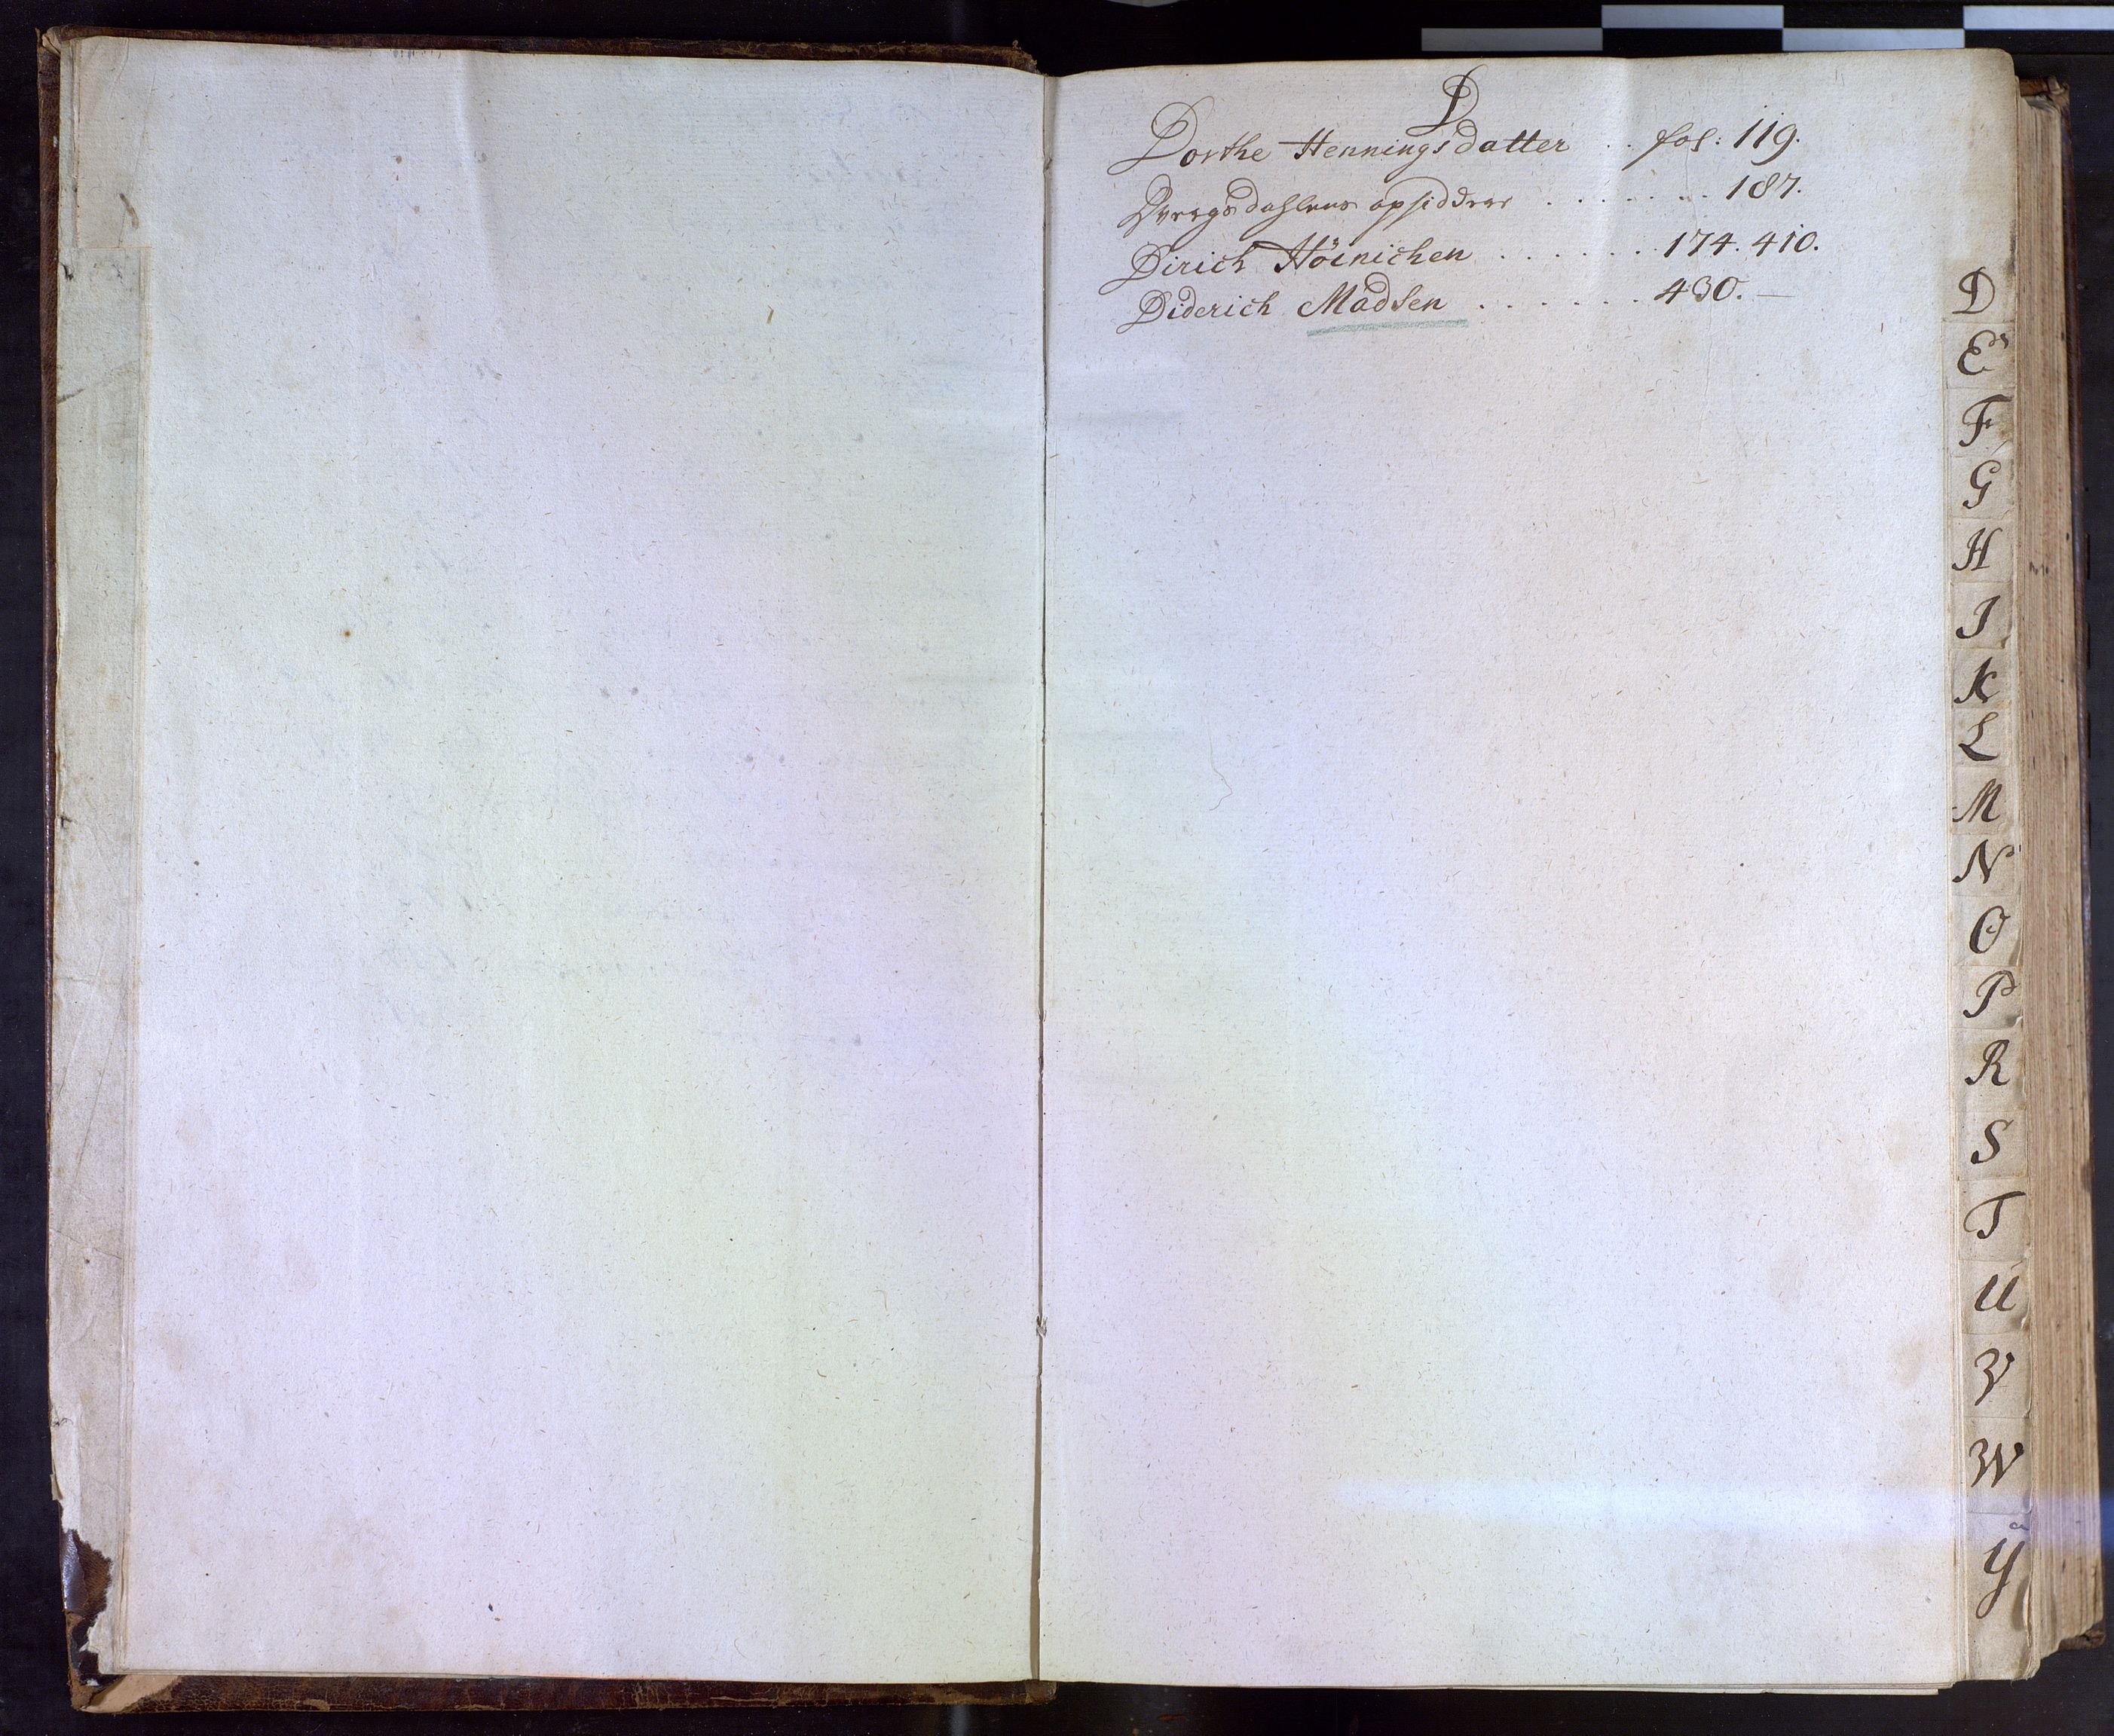 D
Dorthe Henningsdatter . . fol: 119.
Dvergsdahlens opsiddere . . . . . . . 187.
Dirich Höinichen . . . . . . 174. 410.
Diderich Madsen . . . . . . 430. —
D
E
F
G
H
I
K
L
M
N
O
P
R
S
T
U
V
W
Y